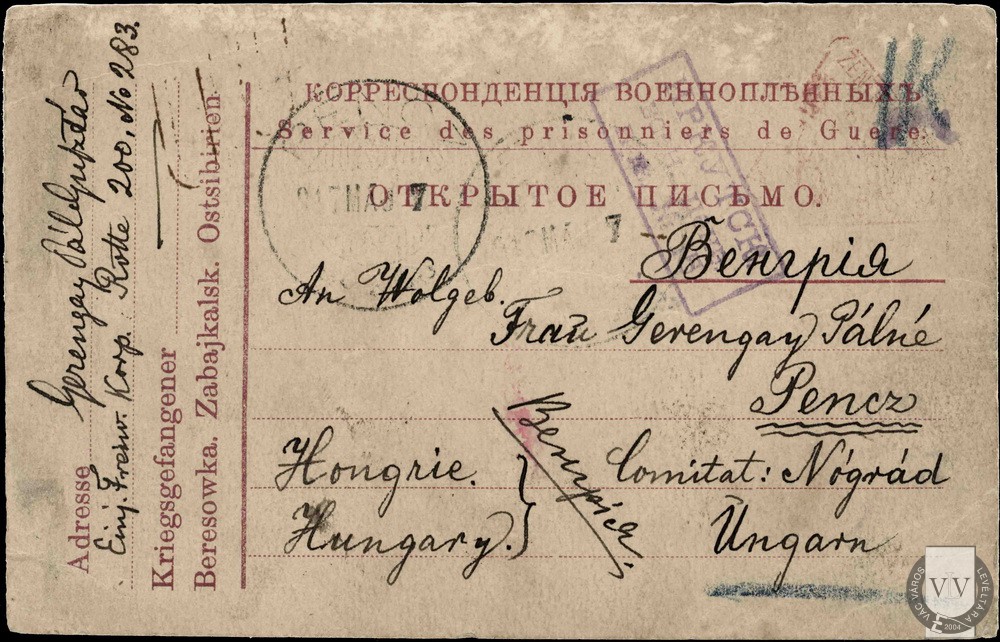 КОРРЕСПОНДЕНЦІЯ ВОЕННОПЛѢННЫХЪ
Service des prisonniers de Guere.
ОТКРЫТОЕ ПИСЬМО.
Венгрія
An Wolgeb.
Frau Gerengay Pálné
Pencz
Hongrie. Comitat: Nógrád
Hungary. Ungarn
Венгрія.
Adresse Gerengay Pál
Einj. Freiw. Korp. Rotte 200. No 283.
Kriegsgefangener
Beresowka. Zabajkalsk. Ostsibirien
MAJ 7
7
VÁC VÁROS LEVÉLTÁRA
VV
2004